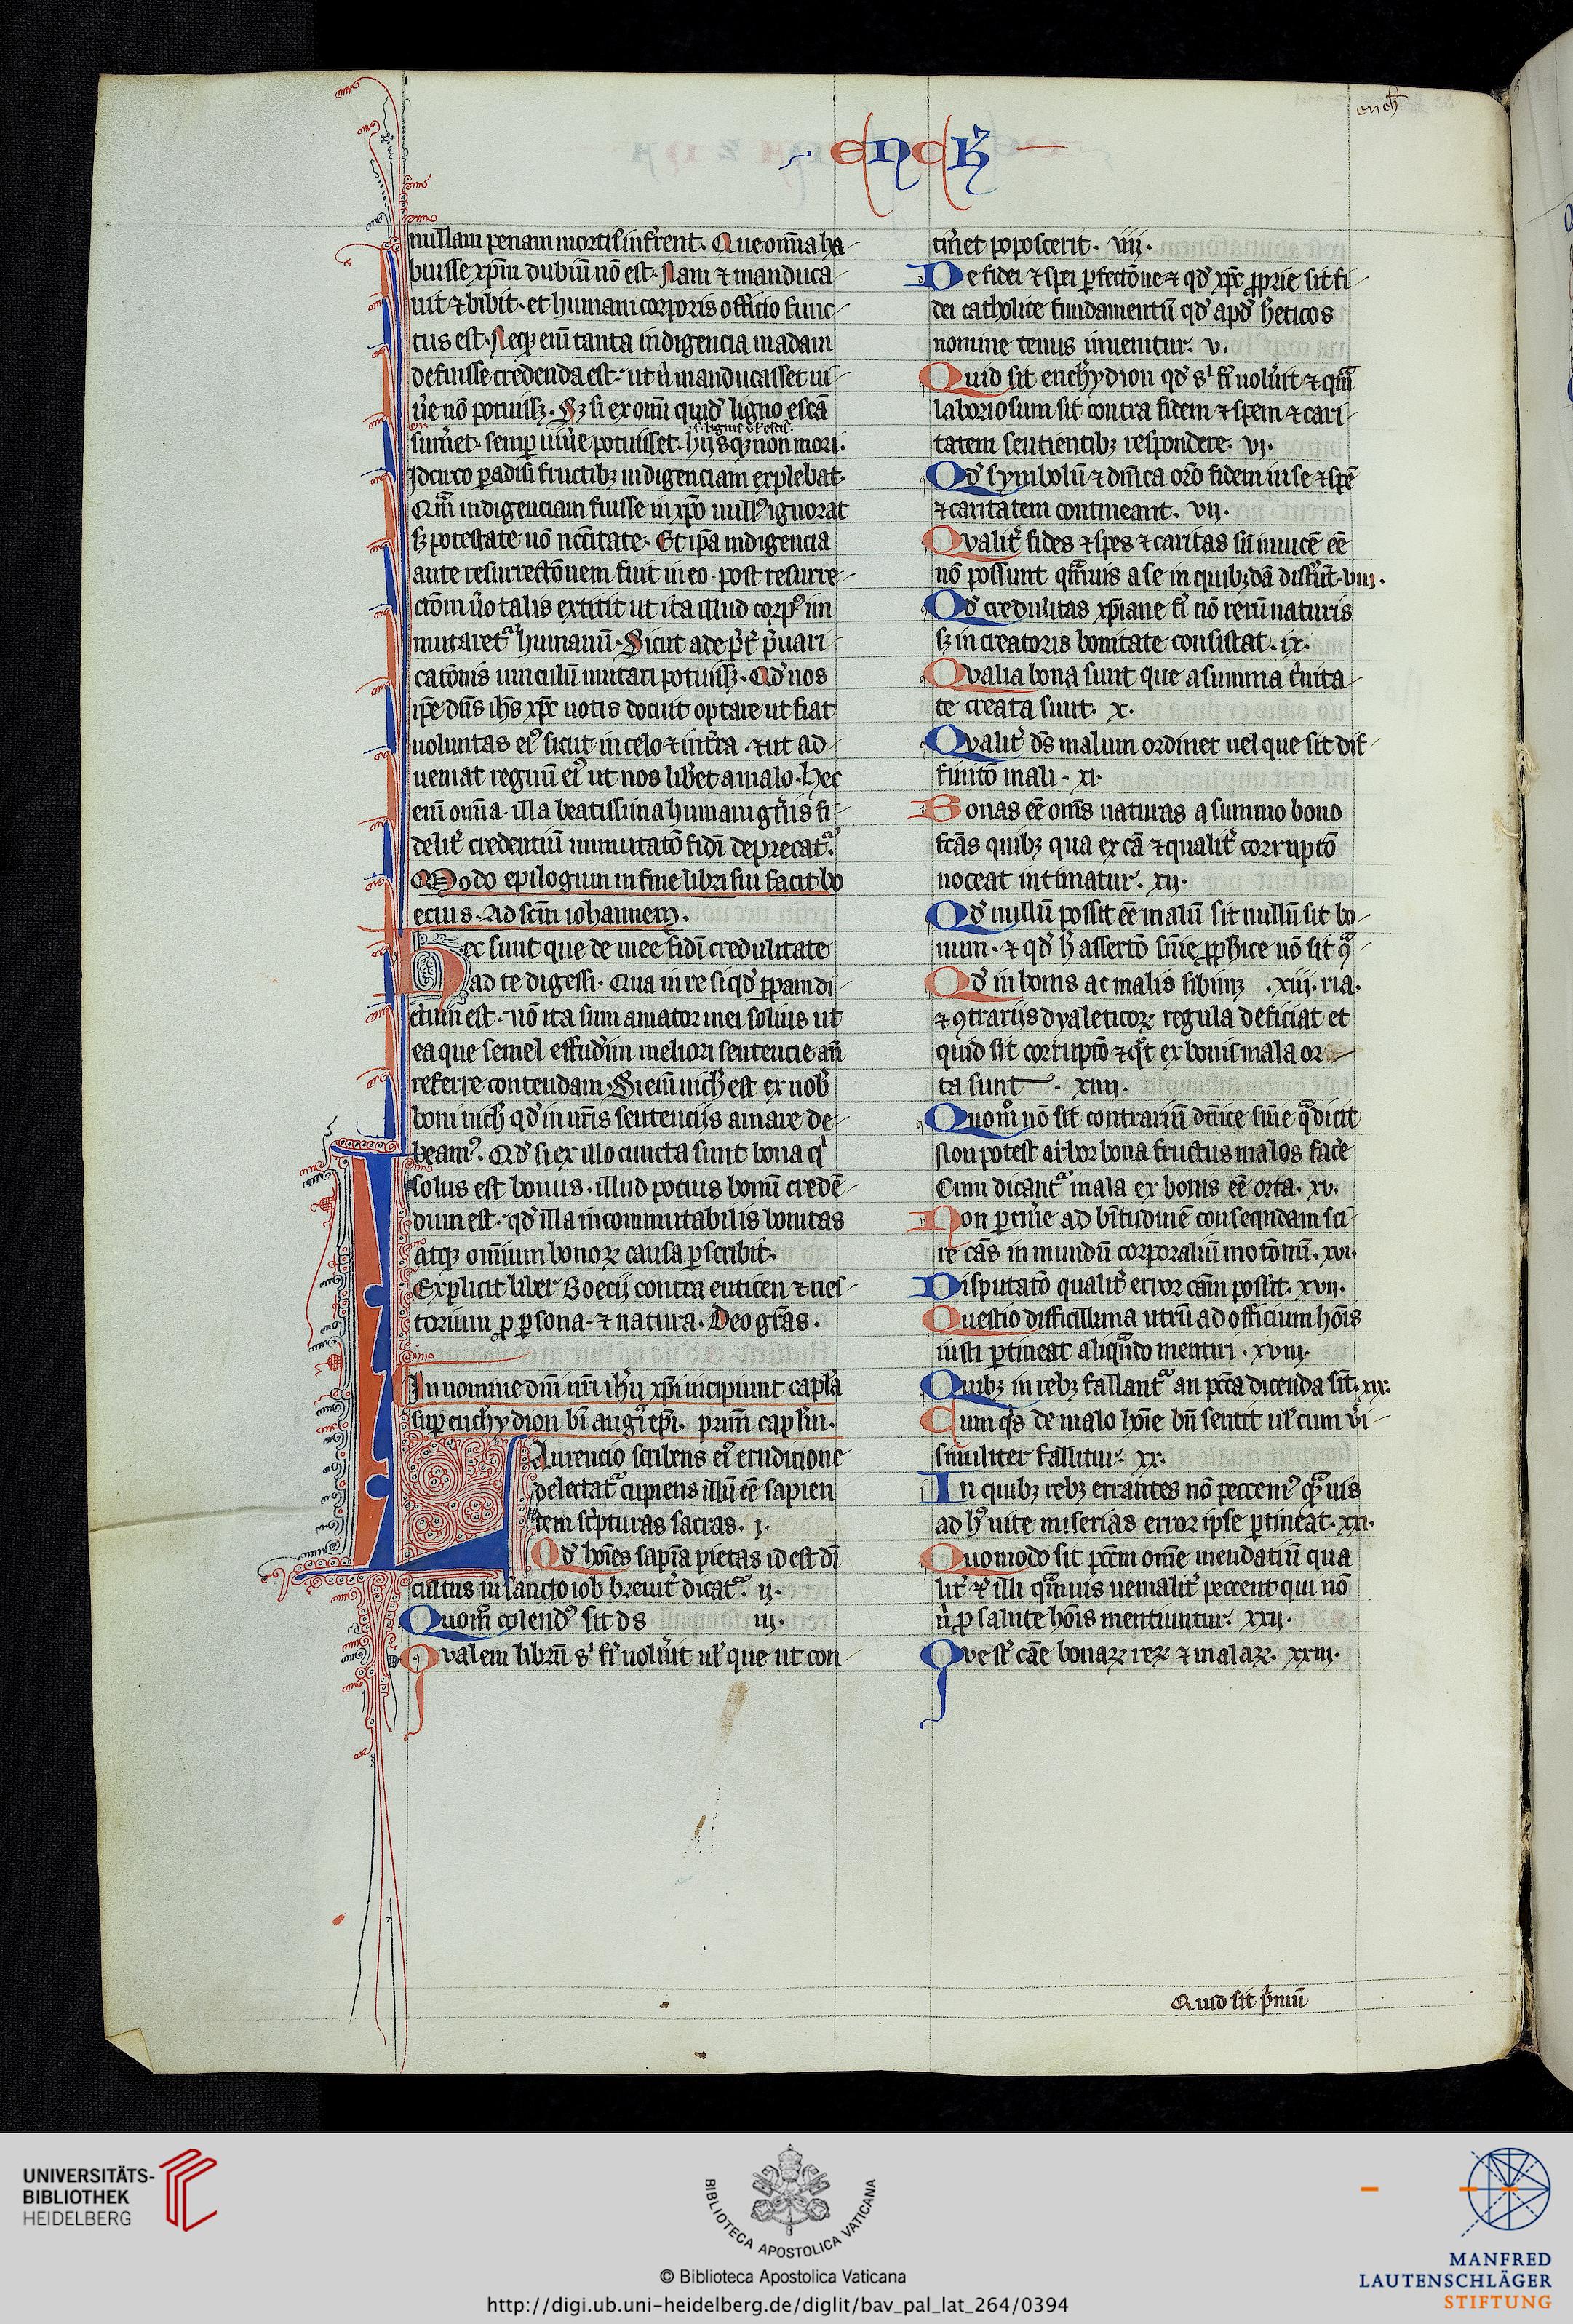 ench
encħ
nullam penam mortis infẽrent. Que om̃ia ha-
buisse xp̃m dubiũ nõ est. Nam ⁊ manduca-
uit ⁊ bibit. et humani corporis officio func-
tus est. Neq; eni tanta indigencia in adam
defuisse credenda est. ut ñ manducasset ui-
u̾e nõ potuiss;. S; si ex om̃i quid̾ ligno escã
s. lignis ul̾ escis.
sum̾et. semꝑ uiu̾e potuisset. hijsq; non mori.
Idcirco ꝑadisi fructib; indigenciam explebat.
Qm̃ indigenciam fuisse in xp̃o null̾ ignorat
s; potestate nõ nc̃c̃itate. Et ip̃a indigencia
ante resurrectõnem fuit in eo. post resurre-
ctõm u̾o talis extitit ut ita illud corp̾ im
mutaret̾ humanũ. Sicut ade p̾t̾ p̾uari-
catõnis uinculũ mutari potuiss;. Qd̾ nos
ip̃e dñs ih̃s xp̃c uotis docuit optare ut fiat
uoluntas ei̾ sicut in celo ⁊ in t̾ra. ⁊ ut ad-
ueniat regnũ ei̾ ut nos lib̾et a malo. Hec
eni om̃ia. illa beatissima humani gñis fi-
delit̾ credentiũ inmutatõ fidi deprecat̾.
Modo epilogum in fine libri sui facit bo
ecius. Ad sc̃m iohannem.
Hec sunt que de mee fidi credulitate
ad te digessi. Qua in re si qd̾ ꝑꝑam di-
ctum est. nõ ita sum amator mei solius ut
ea que semel effud̾im meliori sentencie añ
referre contendam. Si eni nich̾ est ex nob̾
boni nich̾ qd̾ in ur̃is sentencijs amare de-
beam̾. Qd̾ si ex illo cuncta sunt bona q̾
solus est bonus. illud pocius bonũ credẽ-
dum est. qd̾ illa incommutabilis bonitas
atq; omnium bonoꝝ causa ꝑscribit.
Explicit liber Boecij contra euticen ⁊ nes-
torium ꝓ ꝑsona. ⁊ natura. Deo gr̃as.
In nomine dñi nr̃i ih̾u xp̃i incipiunt capl̾a
suꝑ enchydion bi̾ augꝰ ep̃i. primũ cap l̾m.
Laurencio scribens ei̾ eruditione
delectat̾ cupiens illũ eẽ sapien
tem sc̾pturas sacras. i.
Qd̾ hoĩes sapĩa pietas id est di
cultus in sancto iob breuit̾ dicat̾. ij.
Quom̾ colend̾ sit ds iij.
Qualem librũ s̾ fi̾ uolu̾it ul̾ que ut con-
tin̾et poposcerit. iiij.
De fidei ⁊ spei ꝑfectõne ⁊ qd̾ xp̃c ꝓprie sit fi-
dei catholice fundamentũ qd̾ apd̾ h̾eticos
nomine tenus inuenitur. v.
Quid sit enchydion qd̾ s̾ fi̾ uolu̾it ⁊ qm̃
laboriosum sit contra fidem ⁊ spem ⁊ cari-
tatem sentientib; respondere. vi.
Qd̾ symbolũ ⁊ dñica or̃o fidem in se ⁊ spẽ
⁊ caritatem contineant. vij.
Qualit̾ fides ⁊ spes ⁊ caritas si̾ inuicẽ eẽ
nõ possunt qm̃uis a se in quib;dã diff̾ũt. viij.
Qd̾ credulitas xp̃iane fi̾ nõ rerũ naturis
s; in creatoris bonitate consistat. ix.
Qualia bona sunt que a summa t̾nita-
te creata sunt. x.
Qualit̾ ds malum ordinet uel que sit dif-
finitõ mali. xi.
Bonas eẽ om̃s naturas a summo bono
fc̃as quib; qua ex cã ⁊ qualit̾ corruptõ
noceat intimatur. xij.
Qd̾ nullũ possit eẽ malũ si nullũ sit bo-
num. ⁊ qd̾ h̾ assertõ sñie ꝓph̾ice nõ sit ꝯ̾-
Qd̾ in bonis ac malis sibim; . xiij. ria.
⁊ ꝯtrarijs dyaleticoꝝ regula deficiat et
quid sit corruptõ ⁊ q̾t ex bonis mala or-
ta sunt. xiiij.
Quom̾ nõ sit contrariũ dñice sñie q̃ dicit
Non potest arbor bona fructus malos fac̾e
Cum dicant̾ mala ex bonis eẽ orta. xv.
Non ꝑtin̾e ad bi̾tudinẽ conseqndam sci-
re cãs in mundũ corporaliũ motõnũ. xvi.
Disputatõ qualit̾ error cãm possit. xvij.
Questio difficillima utrũ ad officium hoĩs
iusti ꝑtineat aliqñdo mentiri. xviij.
Quib; in reb; fallant̾ an pcc̃a dicenda sĩt. xix.
Cum q̾s de malo hoĩe bñ sentit ul̾ cum u̾i-
similiter fallitur. xx.
In quib; reb; errantes nõ peccem̾ qm̃uis
ad h̾ uite miserias error ipse ꝑtineat. xxi.
Quomodo sit pcc̃m om̃e mendatiũ qua
lit̾ ⁊ illi qm̃uis uenialit̾ peccent qui nõ
n̾ ꝓ salute hoĩs mentiuntur. xxij.
Que st̾ cãe bonaꝝ reꝝ ⁊ malaꝝ. xxiij.
Quid sit p̾mũ
UNIVERSITÄTS-
BIBLIOTHEK
HEIDELBERG
BIBLIOTECA APOSTOLICA VATICANA
© Biblioteca Apostolica Vaticana
MANFRED
LAUTENSCHLÄGER
STIFTUNG
http://digi.ub.uni-heidelberg.de/diglit/bav_pal_lat_264/0394